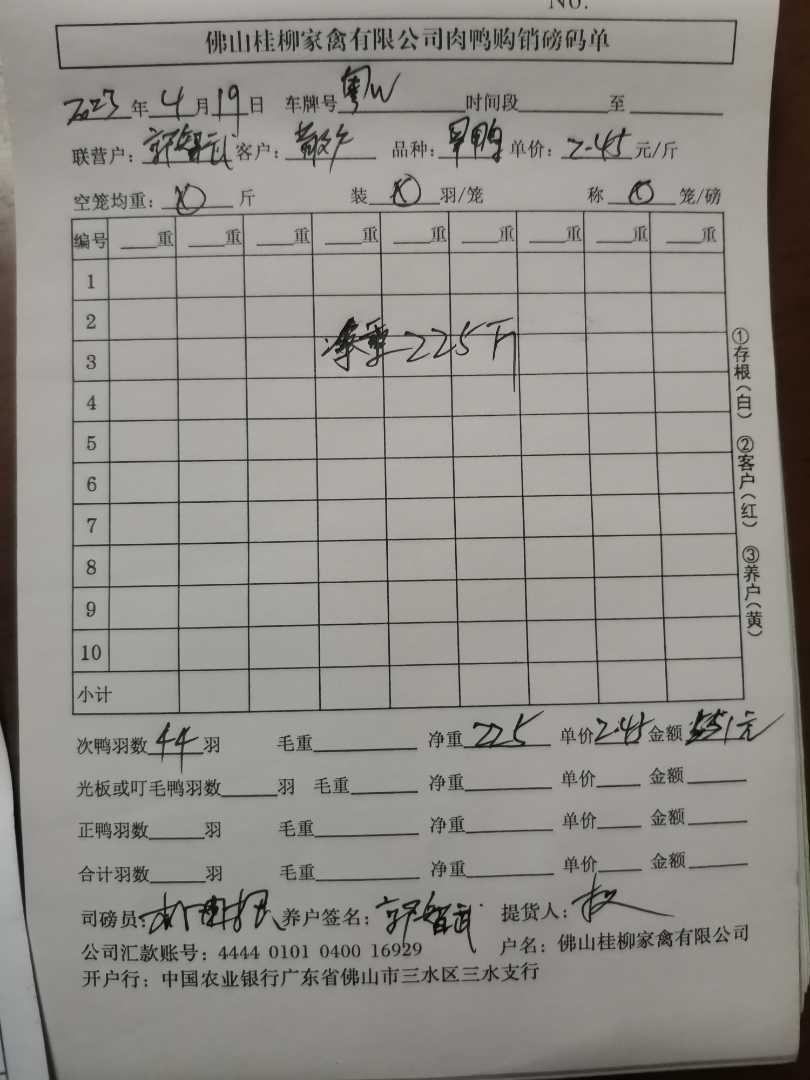 No.
佛山桂柳家禽有限公司肉鸭购销磅码单
2023年4月19日 车牌号粤W 时间段 至
联营户：郭智武 客户： 品种：旱鸭 单价：2.45元/斤
空笼均重： 斤 装 羽/笼 称 笼/磅
编号 重 重 重 重 重 重 重 重 重
1
2
净重225斤
3
4
5
6
7
8
9
10
小计
①存根(白) ②客户(红) ③养户(黄)
次鸭羽数44羽 毛重 净重225 单价2.45金额551元
光板或叮毛鸭羽数 羽 毛重 净重 单价 金额
正鸭羽数 羽 毛重 净重 单价 金额
合计羽数 羽 毛重 净重 单价 金额
司磅员： 养户签名：郭智武 提货人：
公司汇款账号：4444 0101 0400 16929 户名：佛山桂柳家禽有限公司
开户行：中国农业银行广东省佛山市三水区三水支行